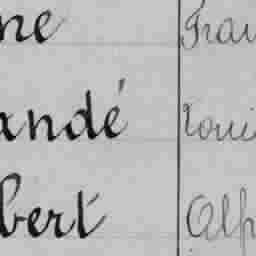 ne Frau
andé Loui
bert Alp